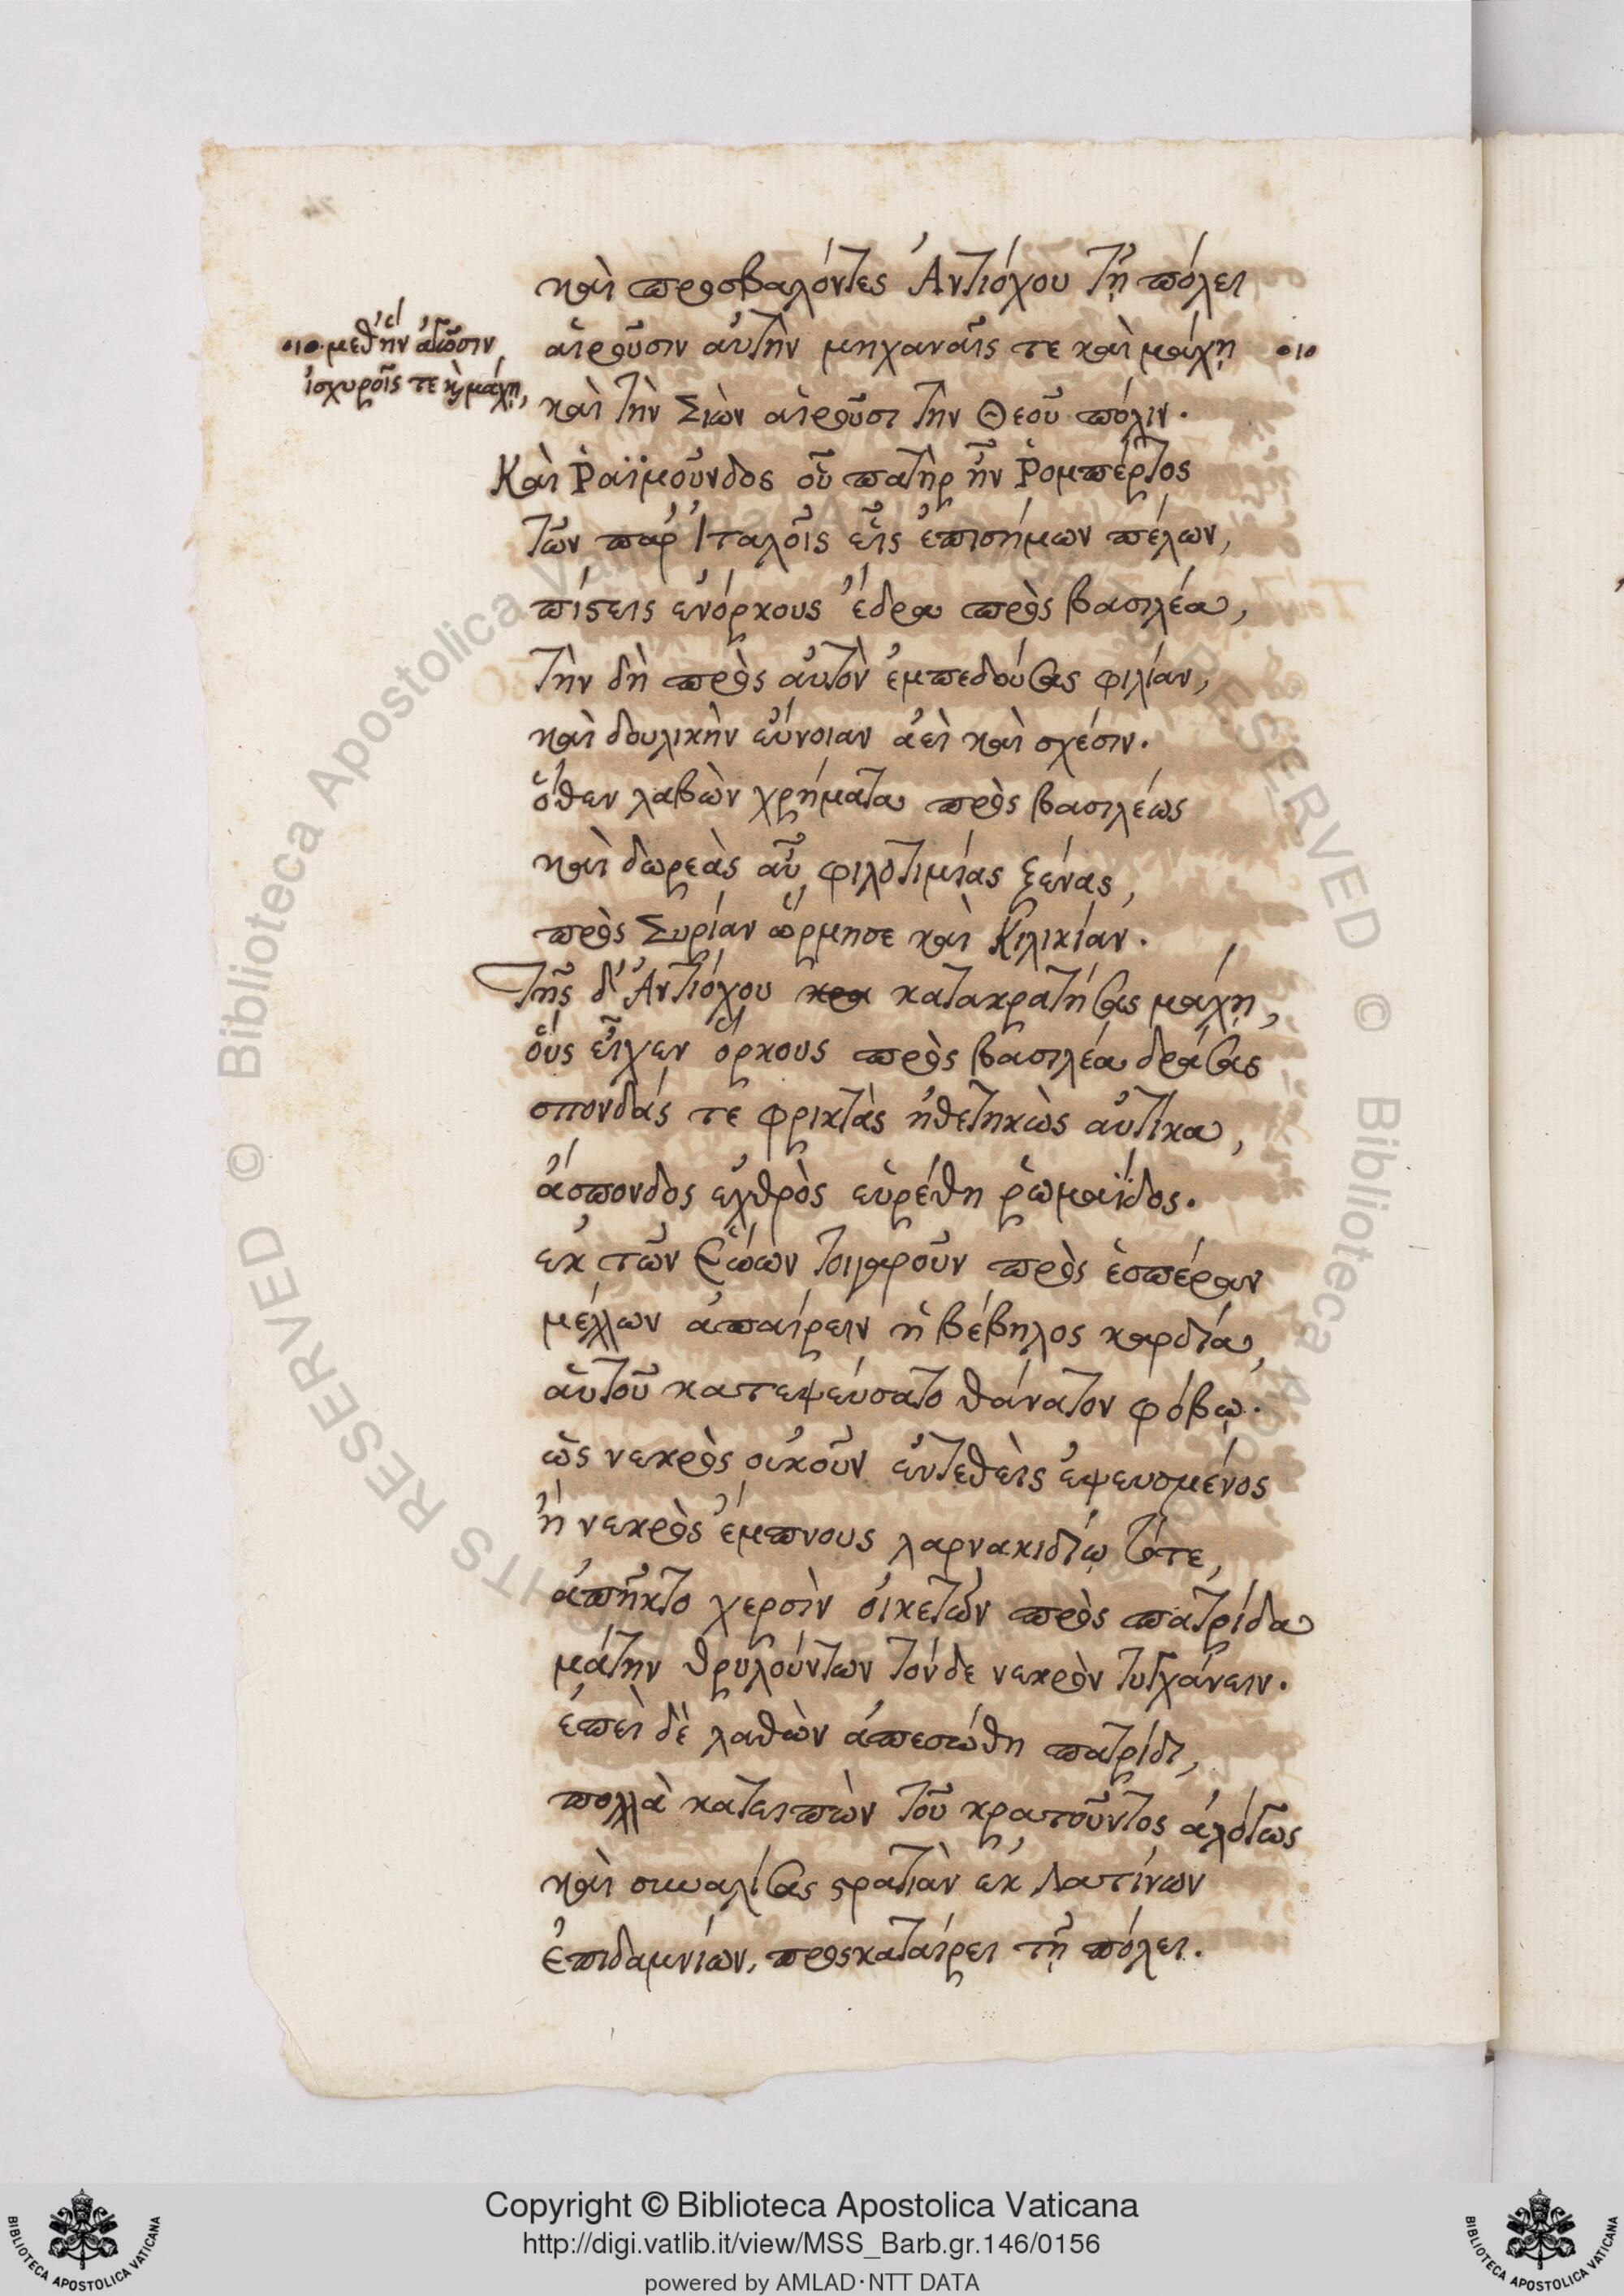 καὶ προσβαλόντες Ἀντιόχου τῇ πόλει
·ιο· μεθ' ἣν αἱροῦσιν
ἰσχυροῖς τε καὶ μάχῃ,
αἱροῦσιν αὐτὴν μηχαναῖς τε καὶ μάχῃ ·ιο
καὶ τὴν Σιὼν αἱροῦσι τὴν Θεοῦ πόλιν.
Καὶ Ῥαϊμοῦνδος οὗ πατὴρ ἦν Ῥομπέρτος
τῶν παρ' Ἰταλοῖς εἷς ἐπισήμων πέλων,
πίστεις ἐνόρκους ἔδρα πρὸς βασιλέα,
τὴν δὴ πρὸς αὐτὸν ἐμπεδούσας φιλίαν,
καὶ δουλικὴν εὔνοιαν ἀεὶ καὶ σχέσιν.
ὅθεν λαβὼν χρήματα πρὸς βασιλέως
καὶ δωρεὰς αὖ φιλοτιμίας ξένας,
πρὸς Συρίαν ὥρμησε καὶ Κιλικίαν.
Τῆς δ' Ἀντιόχου κρα κατακρατήσας μάχῃ,
οὓς εἶχεν ὅρκους πρὸς βασιλέα δράσας
σπονδάς τε φρικτὰς ἠθετηκὼς αὐτίκα,
ἄσπονδος ἐχθρὸς εὑρέθη ῥωμαΐδος.
ἐκ τῶν ἑῴων τοιγαροῦν πρὸς ἑσπέραν
μέλλων ἀπαίρειν ἡ βέβηλος καρδία,
αὑτοῦ κατεψεύσατο θάνατον φόβῳ.
ὡς νεκρὸς οὐκοῦν ἐντεθεὶς ἐψευσμένος
ἢ νεκρὸς ἔμπνους λαρνακιδίῳ τότε,
ἀπῆκτο χερσὶν οἰκετῶν πρὸς πατρίδα
μάτην θρυλούντων τόνδε νεκρὸν τυγχάνειν.
ἐπεὶ δὲ λαθὼν ἀπεσώθη πατρίδι,
πολλὰ κατειπὼν τοῦ κρατοῦντος ἀλόγως
καὶ συναλίσας στρατιὰν ἐκ Λατίνων
ἐπιδαμνίων, προσκαταίρει τῇ πόλει.
Copyright © Biblioteca Apostolica Vaticana
http://digi.vatlib.it/view/MSS_Barb.gr.146/0156
powered by AMLAD·NTT DATA